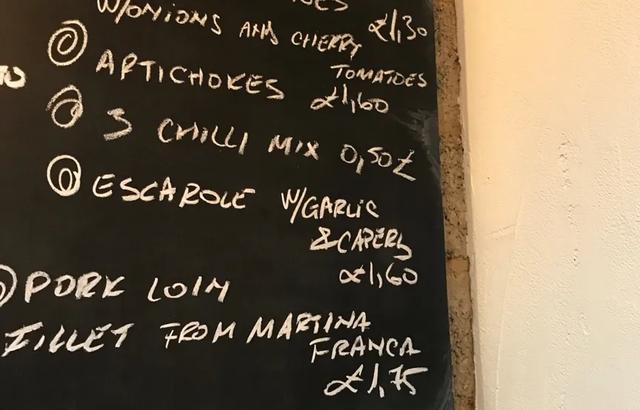 W/ONIONS AND CHERRY £1,30
TOMATOES
ARTICHOKES £1,60
3 CHILLI MIX 0,50£
ESCAROLE W/GARLIC
& CAPERS
£1,60
PORK LOIN
FILLET FROM MARTINA
FRANCA
£1,75